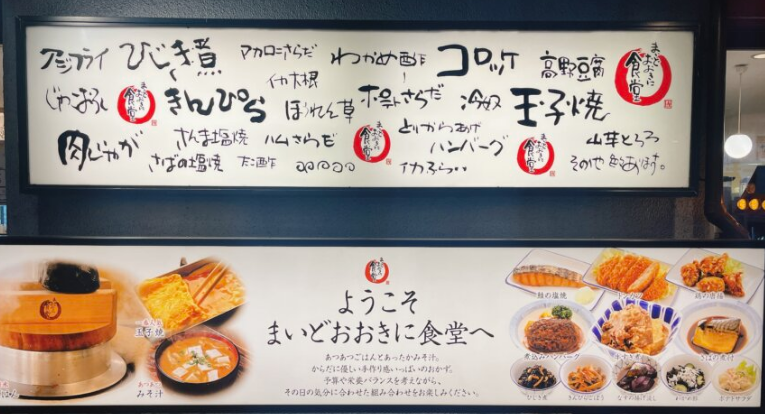 アジフライ ひじき煮 マカロニさらだ わかめ酢 コロッケ 高野豆腐 まいどおおきに食堂
イカ大根
まいどおおきに食堂 きんぴら ほうれん草 ポテトさらだ 冷奴 玉子焼
肉じゃが さんま塩焼 ハムさらだ まいどおおきに食堂 とりからあげ ハンバーグ まいどおおきに食堂 山芋とろろ
さばの塩焼 たこ酢 イカふらい その他色々あります。
まいどおおきに食堂
ようこそ
まいどおおきに食堂へ
あつあつごはんとあったかみそ汁。
からだに優しい手作り感いっぱいのおかず。
予算や栄養バランスを考えながら、
その日の気分に合わせた組み合わせをお楽しみください。
玉子焼
あつあつ
みそ汁
鮭の塩焼 とんかつ 鶏の唐揚
煮込みハンバーグ すき煮 さばの煮付
ひじき煮 きんぴらごぼう なすの揚げ浸し わかめ酢 ポテトサラダ